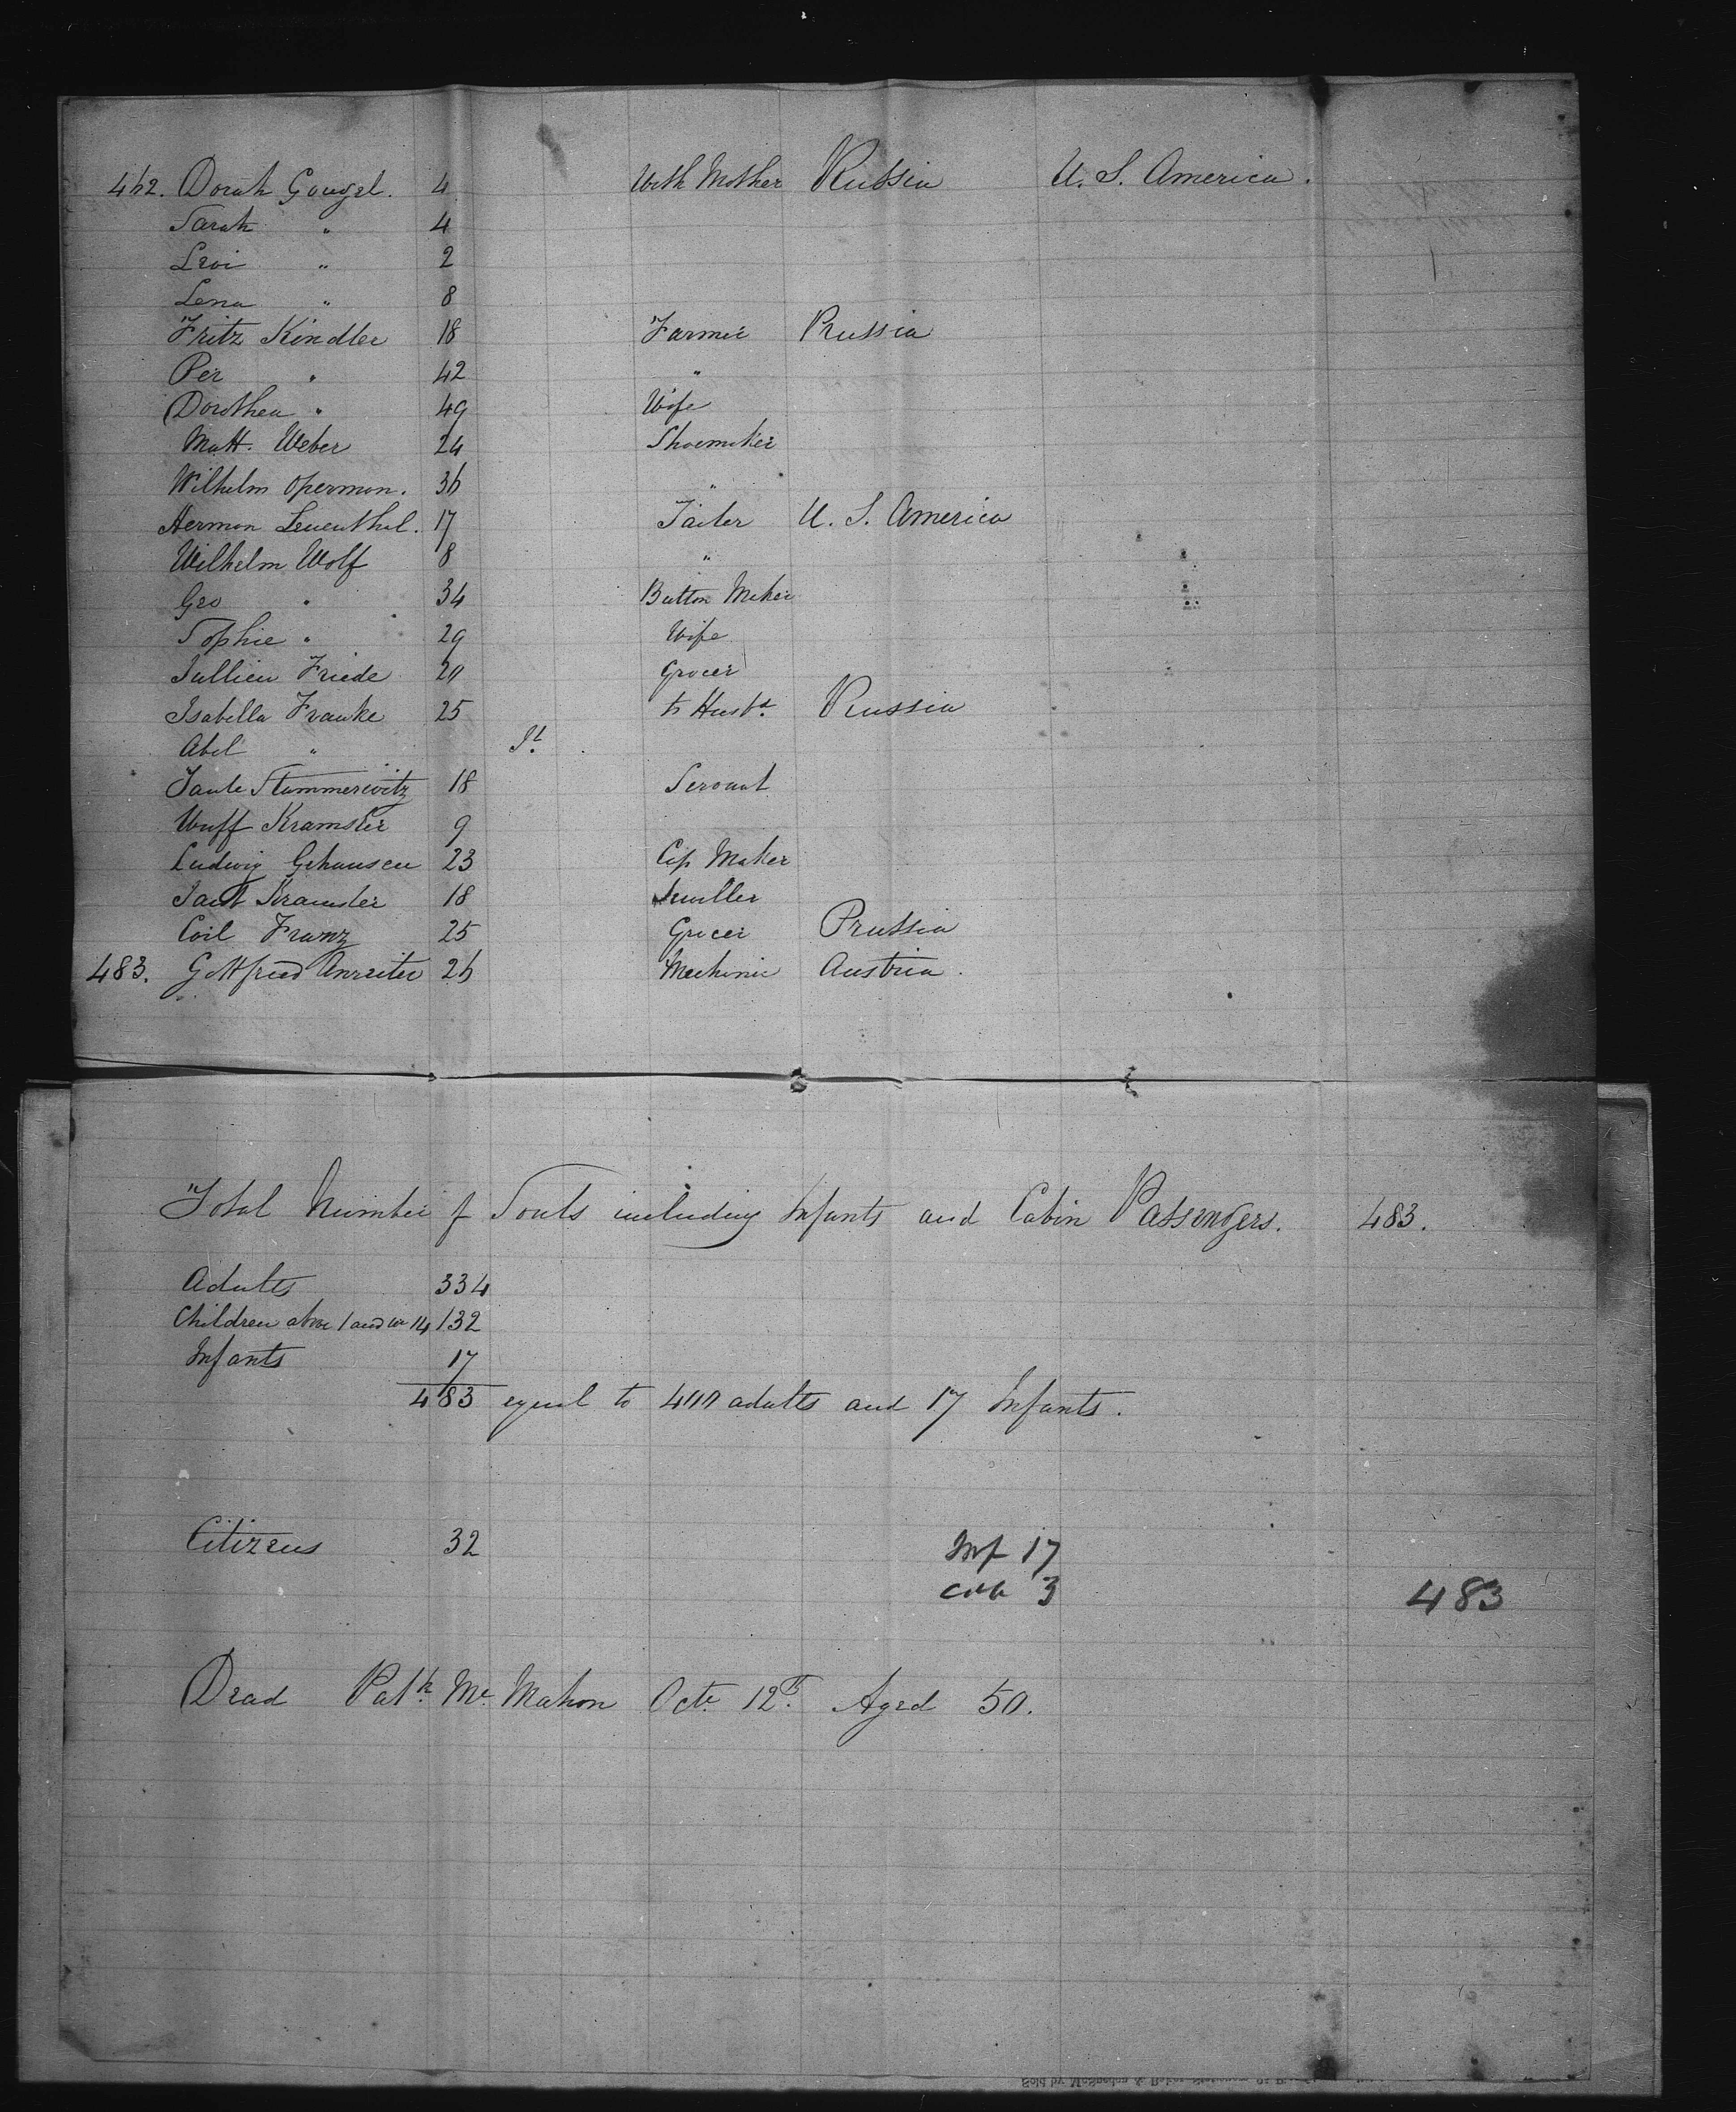 462. Dorah Gougel. 4 With Mother Russia U. S. America.
Sarah " 4
Levi " 2
Lena " 8
Fritz Kindler 18 Farmer Prussia
Per " 42 "
Dorothea " 49 Wife
Matt. Weber 24 Shoemaker
Wilhelm Opermon. 36 "
Hermon Leventhal. 17 Tailer U. S. America
Wilhelm Wolf 8 "
Geo " 34 Button Maker
Sophie " 29 Wife
Jullien Friede 20 Grocer
Isabella Franke 25 to Husbd. Russia
Abel " It.
Taule Stummeriwitz 18 Servant
Wuff Kramster 9
Ludwig Gehausen 23 Cap Maker
Kramster 18
Franz 25 Grocer Prussia
483. Gottfried Anreiter 26 Mechinic Austria.
Total Number of Souls including Infants and Cabin Passengers. 483.
Adults 334
Children above 1 and ur 14 132
Infants 17
483 equal to 400 adults and 17 Infants.
Citizens 32 Inf 17
3 483
Dead Patk. Mc. Mahon Octr. 12th. Aged 50.